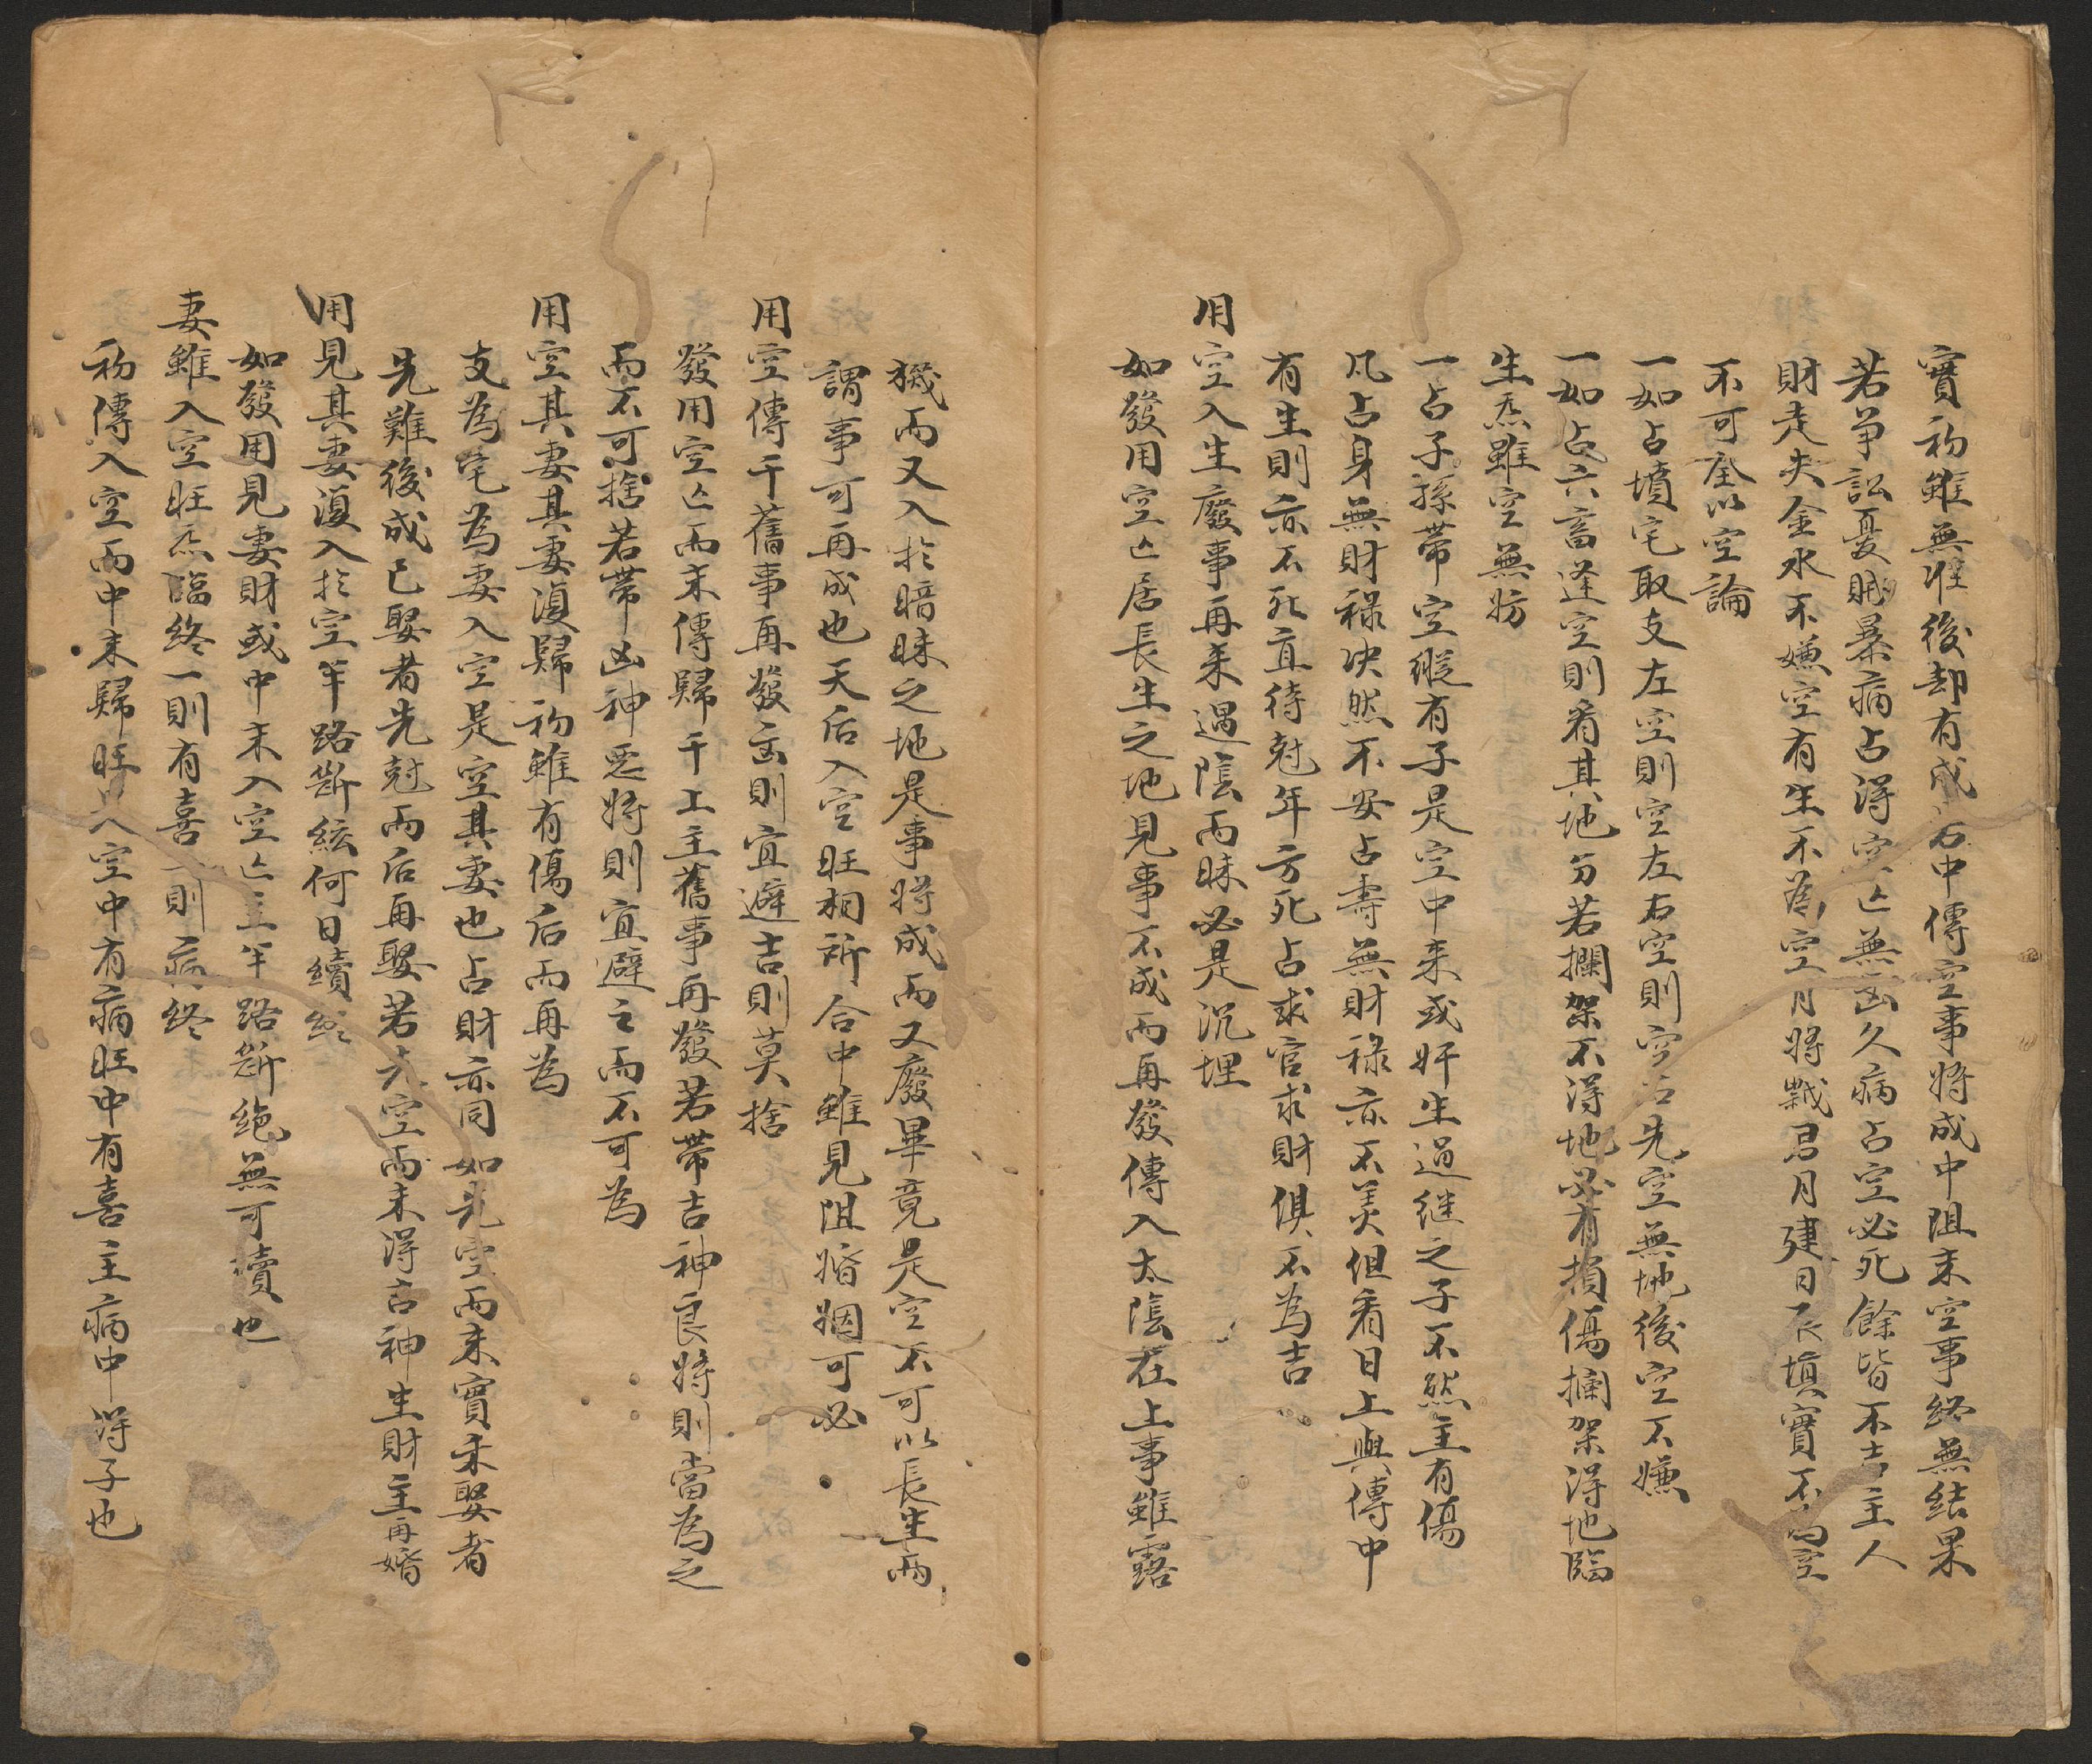 實初雖無准後却有成若中傳空事將成中阻末空事終無結果
若爭訟憂賊暴病占得空亡無凶久病占空必死餘皆不吉主人
財走失金水不嫌空有生不為空月將戢忌月建日辰填實不為空
不可全以空論
一如占墳宅取支左空則空左右空則空右先空無地後空不嫌
一如占六畜逢空則看其地分若攔架不得地必有損傷攔架得地臨
生炁雖空無妨
一占子孫帶空縱有子是空中来或奸生過继之子不然主有傷
凡占身無財祿决然不安占壽無財祿亦不美但看日上與傳中
有生則亦不死直待尅年方死占求官求財俱不為吉
用空入生廢事再来遇陰而昧必是沉埋
如發用空亡居長生之地見事不成而再發傳入太陰在上事雖露
機而又入扵暗昧之地是事將成而又廢畢竟是空不可以長生而
謂事可再成也天后入空旺相祈合中雖見阻婚姻可必
用空傳干舊事再發凶則宜避吉則莫捨
發用空亡而末傳歸干上主舊事再發若帶吉神良將則當為之
而不可捨若帶凶神惡將則宜避之而不可為
用空其妻其妻湏歸初雖有傷后而再為
支為宅為妻入空是空其妻也占財亦同如先空而末實未娶者
先難後成已娶者先尅而后再娶若先空而末得吉神生財主再婚
用見其妻湏入扵空半路斷絃何日續
如發用見妻財或中末入空亡主半路斷絶無可續也
妻雖入空旺炁臨終一則有喜一則病終
初傳入空而中末歸旺入空中有病旺中有喜主病中得子也